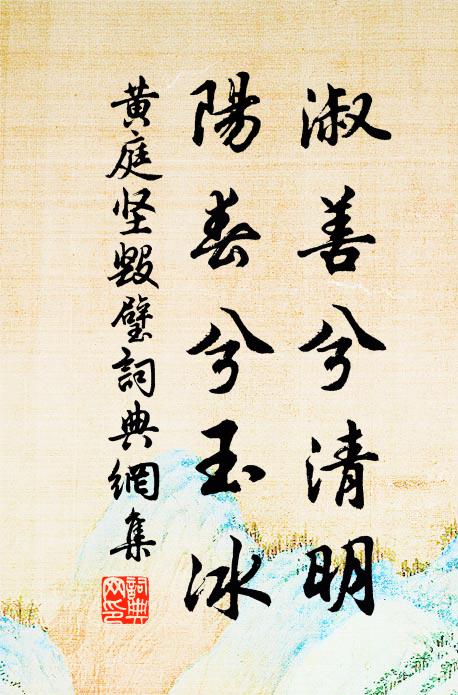 淑善兮清明
陽春兮玉冰
黃庭坚毀璧詞典網集
詞典